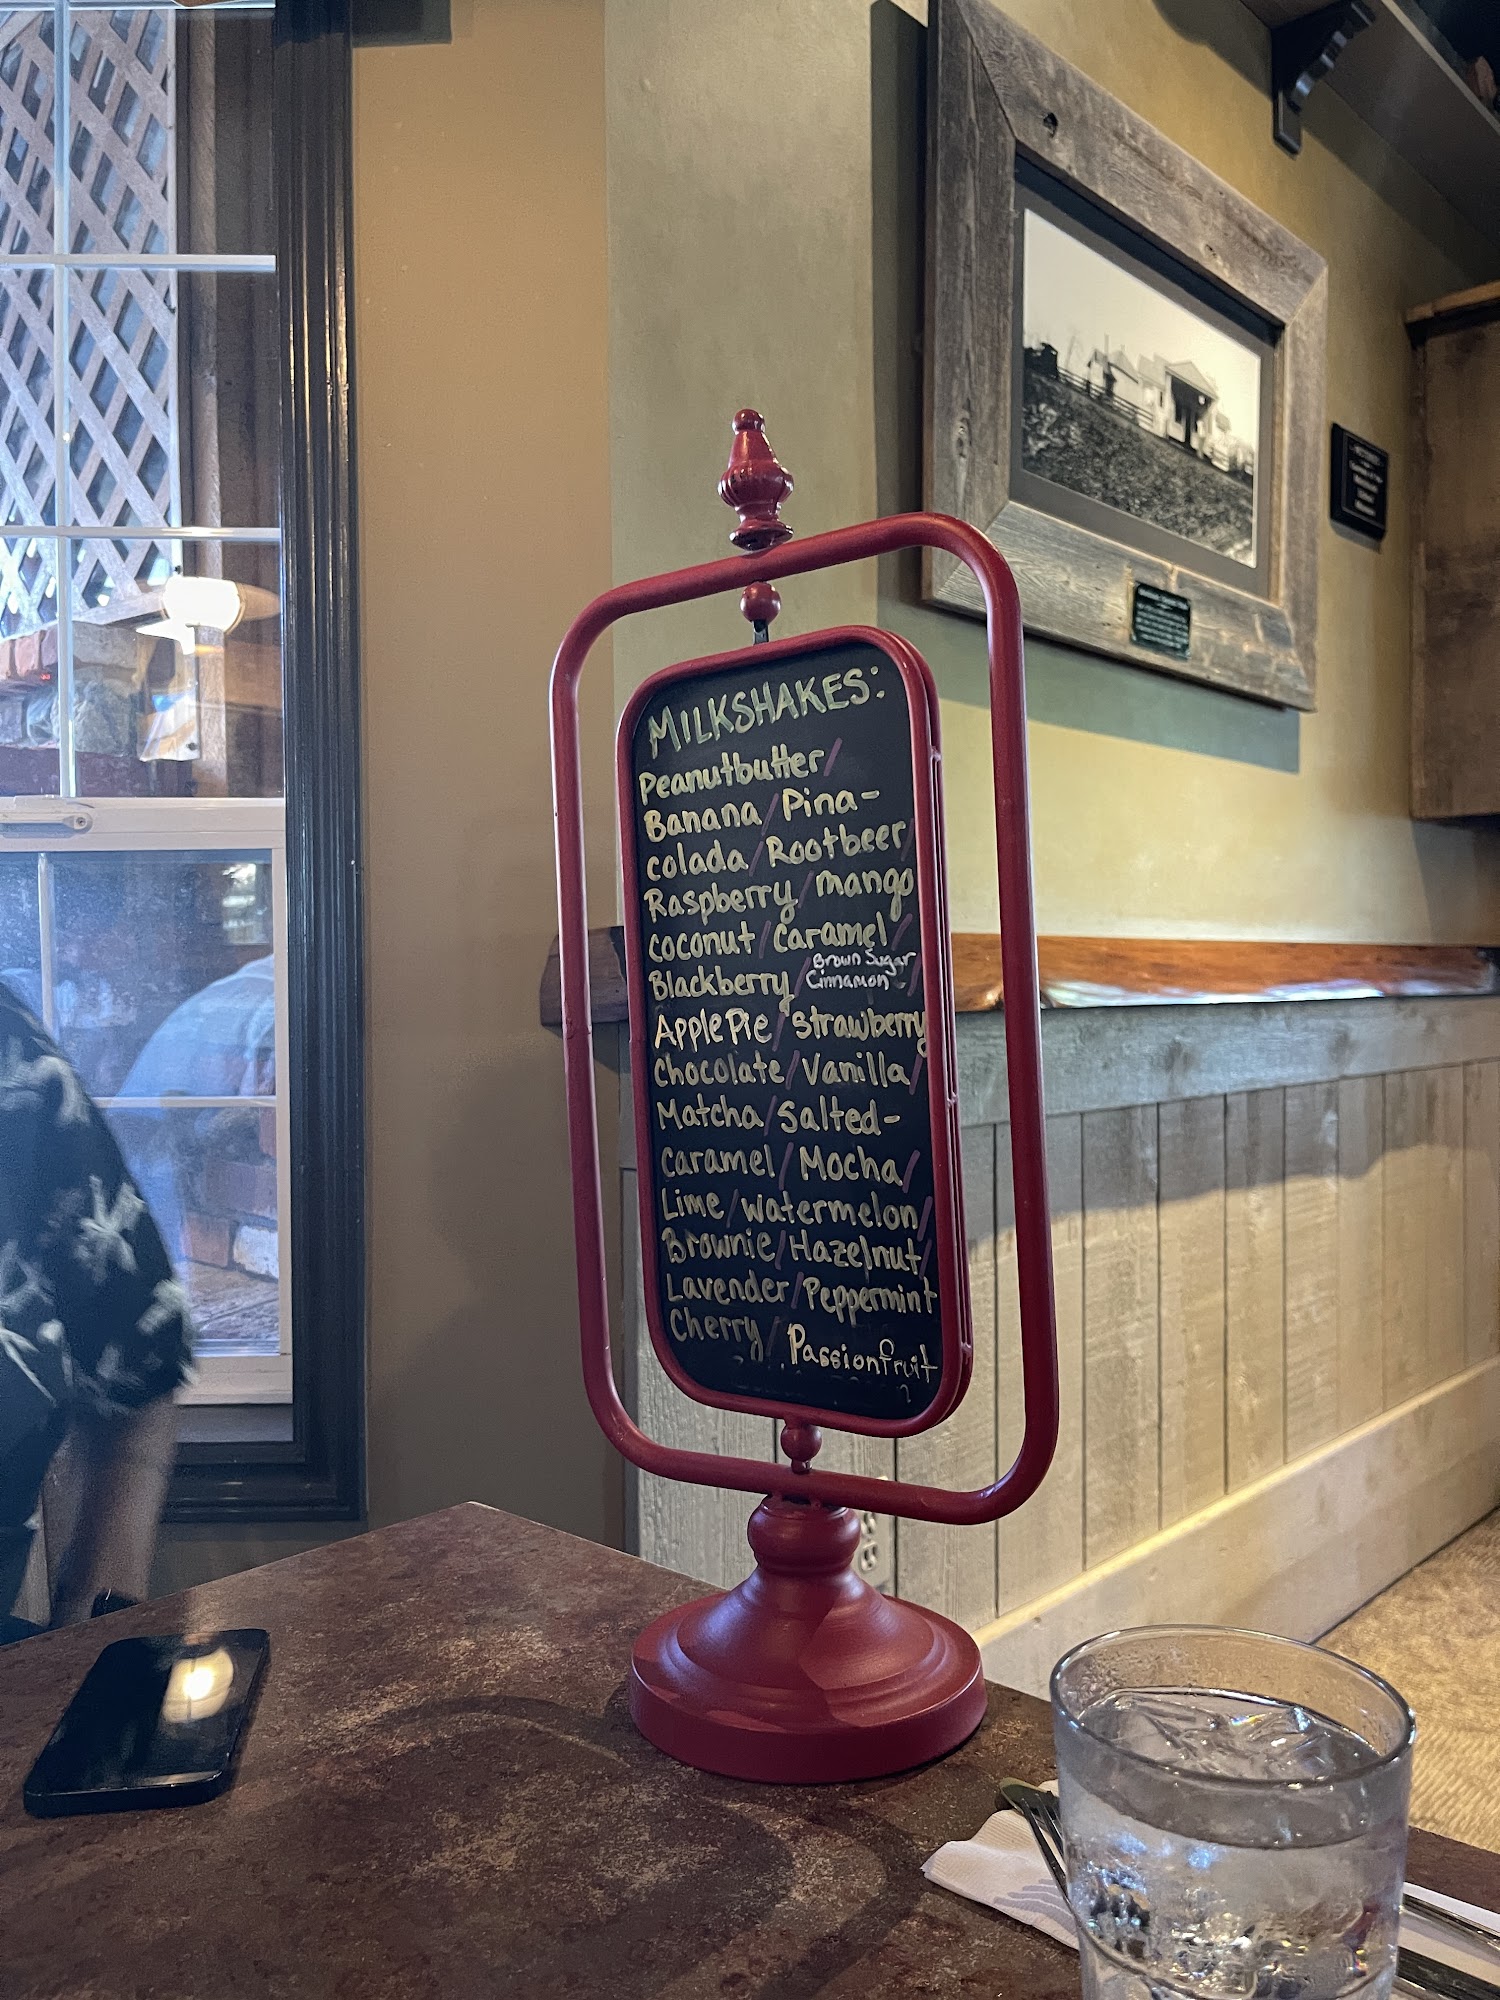 MILKSHAKES:
Peanutbutter/
Banana/Pina-
colada/Rootbeer/
Raspberry/mango
coconut/caramel/
Blackberry/Brown Sugar Cinnamon/
Apple Pie/strawberry
Chocolate/Vanilla/
Matcha/Salted-
caramel/Mocha/
Lime/watermelon/
Brownie/Hazelnut/
Lavender/Peppermint
Cherry/Passionfruit